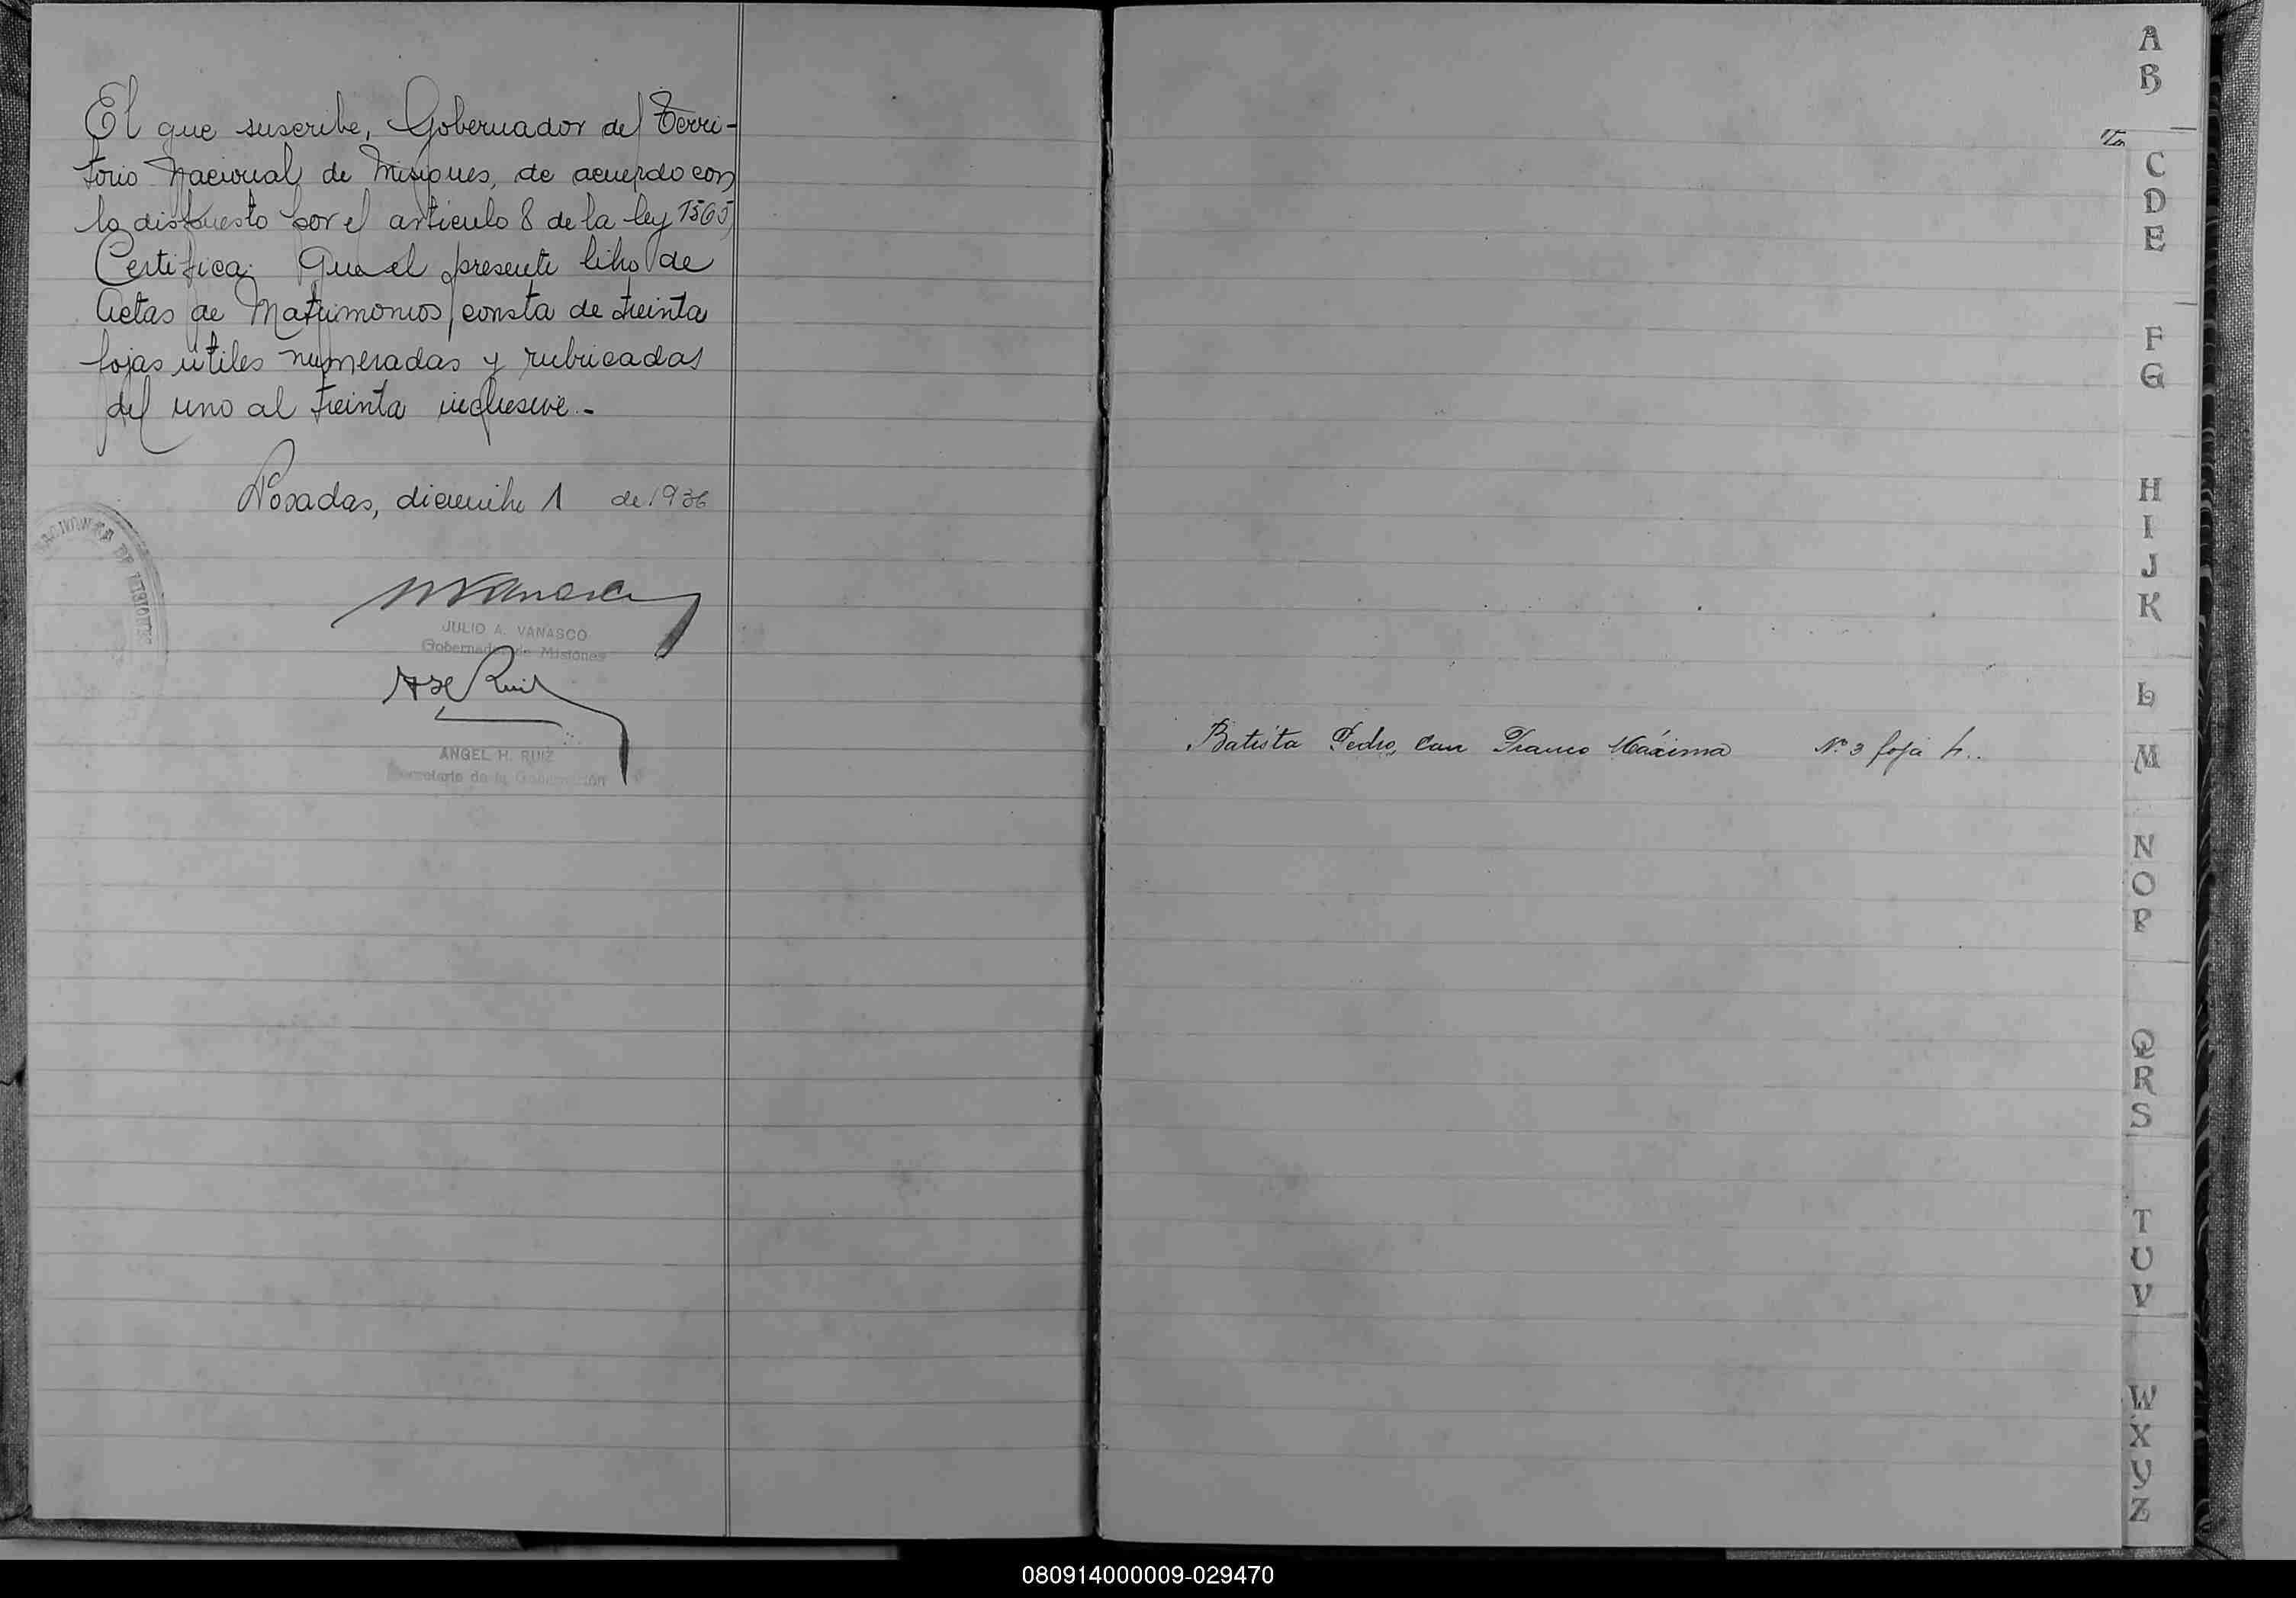 El que suscribe, Gobernador del Terri-
torio Nacional de Misiones, de acuerdo con
lo dispuesto por el articulo 8 de la ley 1565,
Certifica: Que el presente libro de
Actas de Matrimonios, consta de treinta
fojas útiles numeradas y rubricadas
del uno al treinta inclusive.-
Posadas, diciembre 1 de 1936
JULIO A. VANASCO
Gobernador de Misiones
ANGEL H. RUIZ
Secretario de la Gobernación
NACIONAL DE MISIONES
Batista Pedro, con Franco Máxima Nº 3 foja
A
B
C
D
E
F
G
H
I
J
K
L
M
N
O
P
Q
R
S
T
U
V
W
X
Y
Z
080914000009-029470